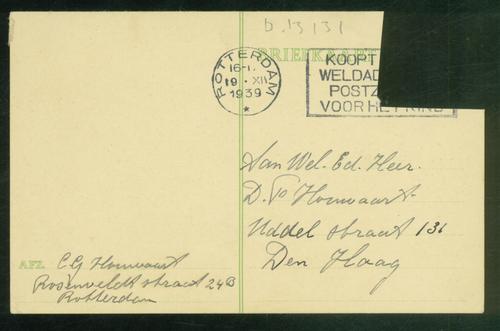 b.13131
BRIEFKAART
ROTTERDAM
16-1.
19 · XII
1939
KOOPT
WELDAD
POSTZ
VOOR HET KIND
Aan Wel-Ed. Heer.
D. Houwaart
Uddel straat 136
Den Haag
AFZ. C G Houwaart
Rosenveldt straat 24B
Rotterdam